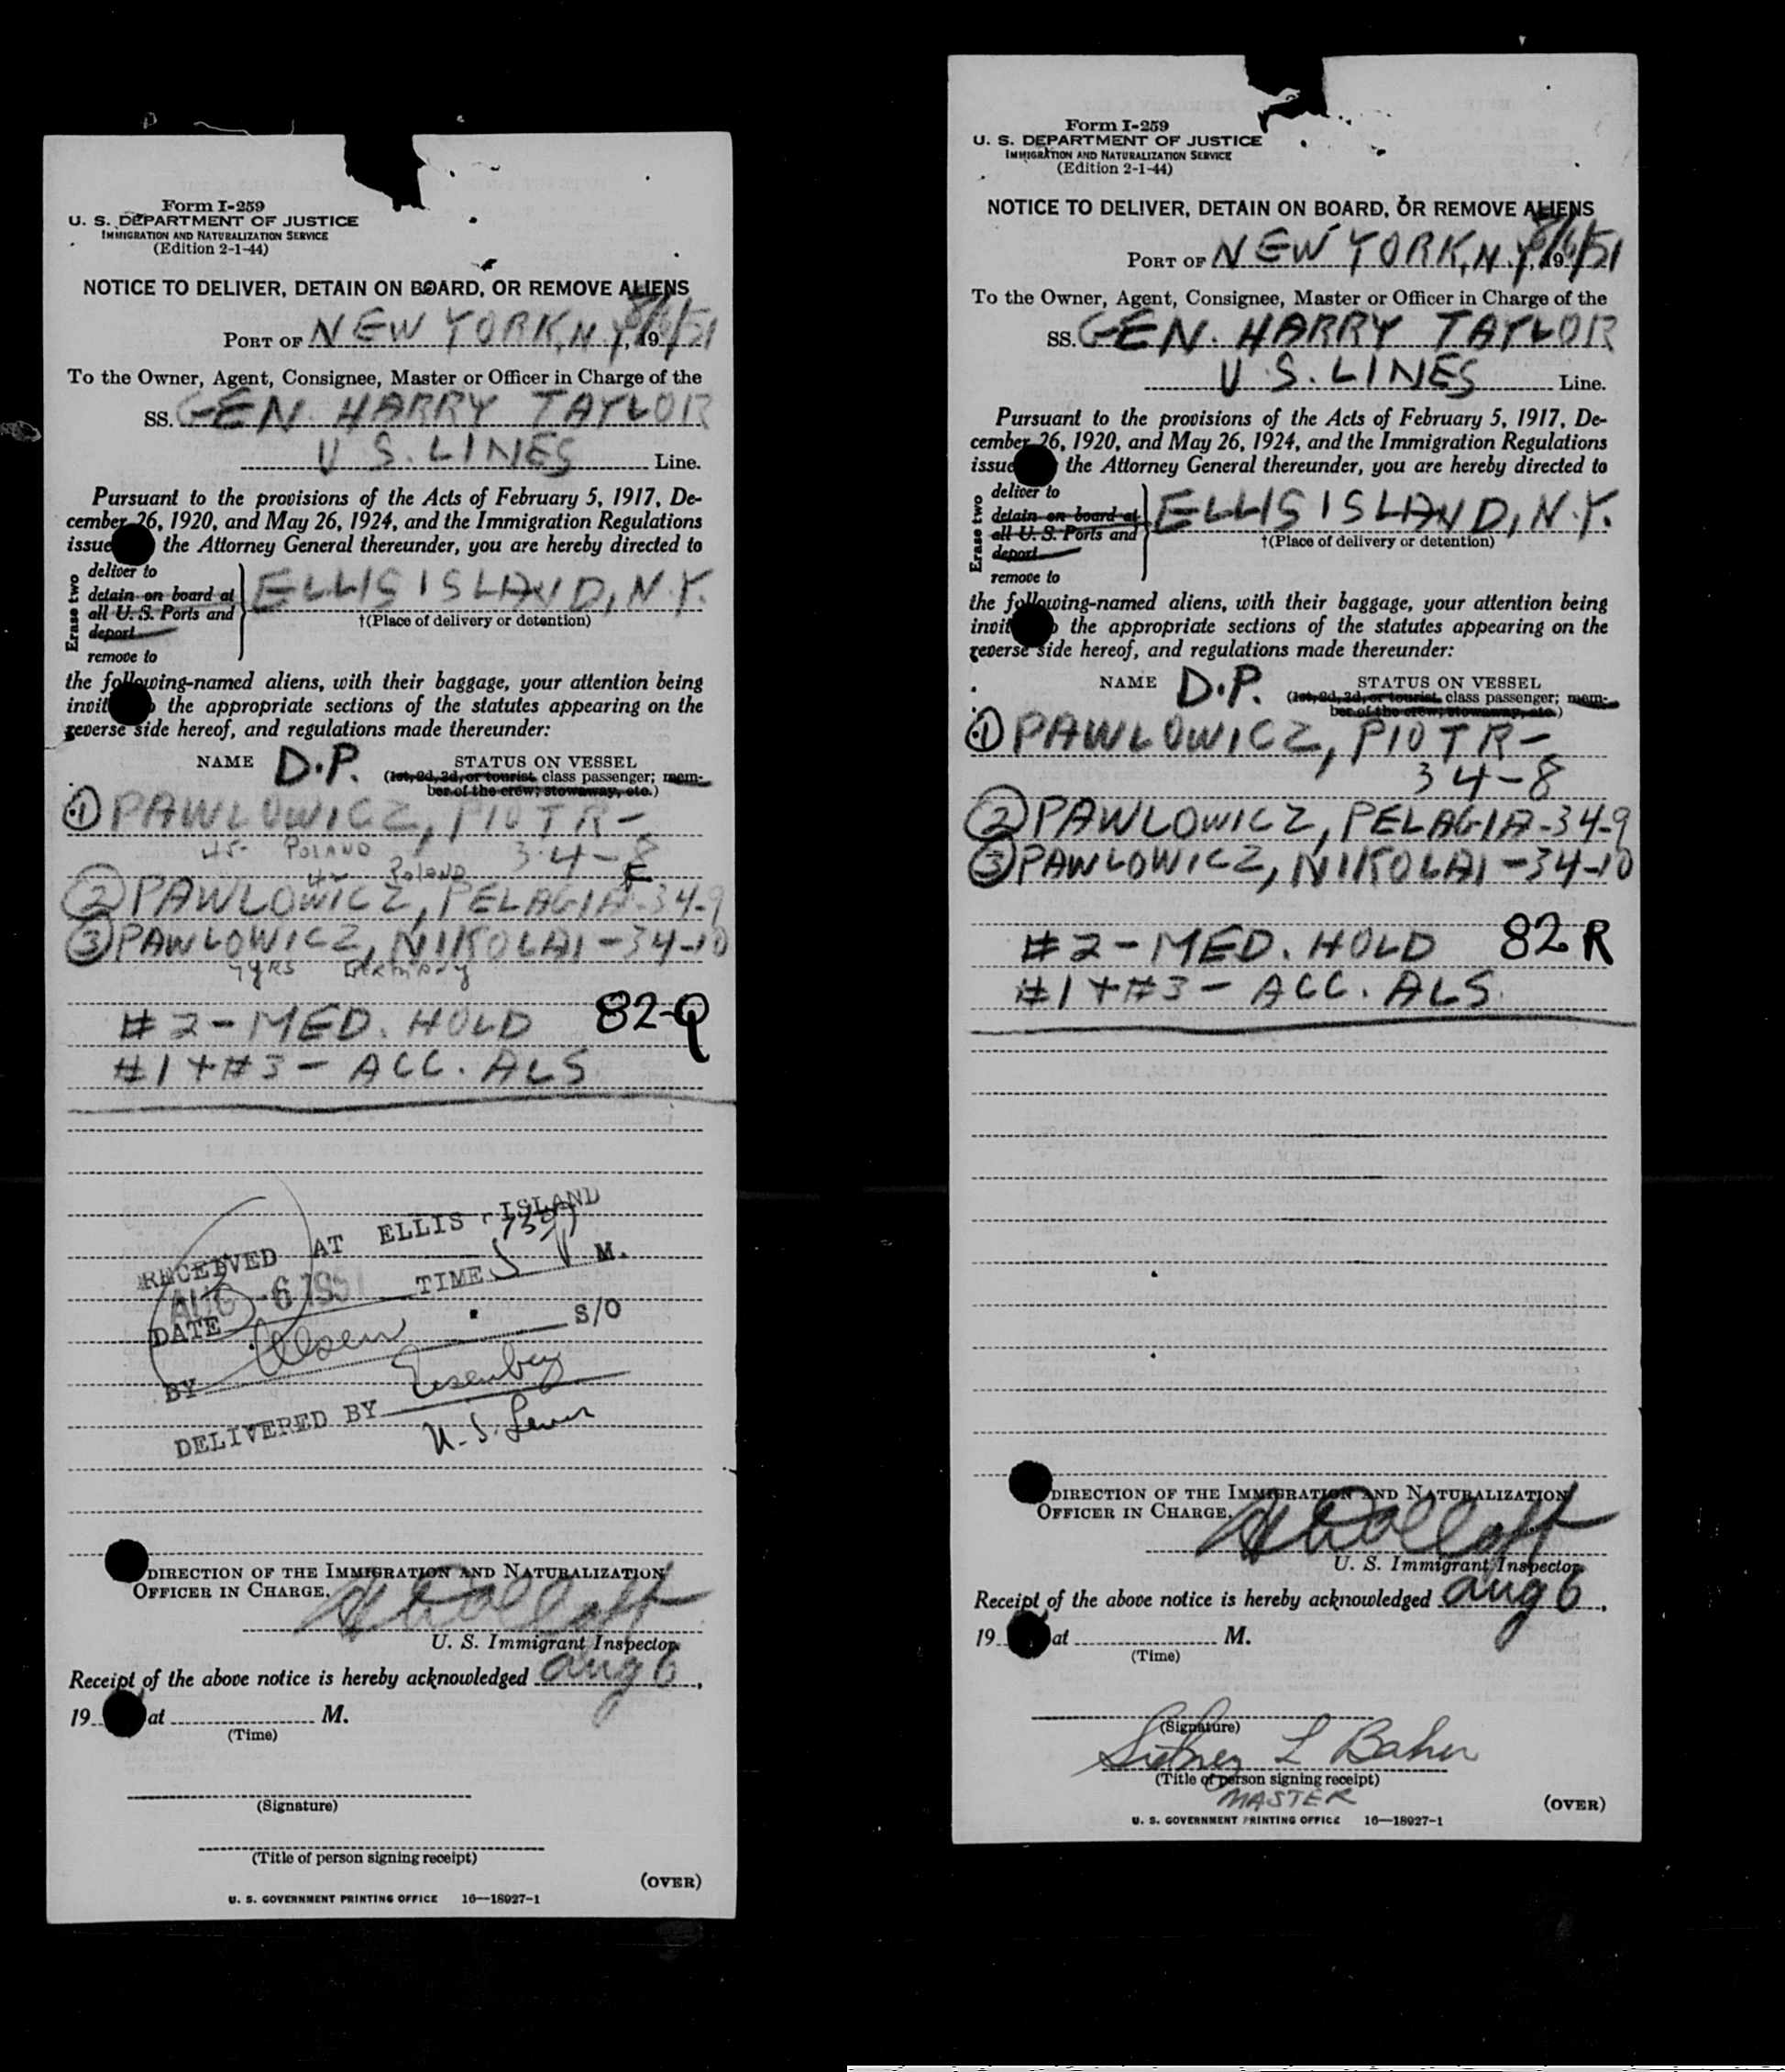 Form I-259
U. S. DEPARTMENT OF JUSTICE
IMMIGRATION AND NATURALIZATION SERVICE
(Edition 2-1-44)
NOTICE TO DELIVER, DETAIN ON BOARD, OR REMOVE ALIENS
PORT OF NEW YORK, N.Y., 19 8/6/51
To the Owner, Agent, Consignee, Master or Officer in Charge of the
SS. GEN. HARRY TAYLOR
U.S. LINES Line.
Pursuant to the provisions of the Acts of February 5, 1917, De-
cember 26, 1920, and May 26, 1924, and the Immigration Regulations
issue the Attorney General thereunder, you are hereby directed to
Erase two
deliver to
detain on board at
all U. S. Ports and
deport
remove to
ELLIS ISLAND, N.Y.
†(Place of delivery or detention)
the following-named aliens, with their baggage, your attention being
invit the appropriate sections of the statutes appearing on the
reverse side hereof, and regulations made thereunder:
NAME D.P. STATUS ON VESSEL
(1st, 2d, 3d, or tourist class passenger; mem-
ber of the crew; stowaway, etc.)
① PAWLOWICZ, PIOTR-
45- POLAND 34-8
42 Poland F
② PAWLOWICZ, PELAGIA-34-9
③ PAWLOWICZ, NIKOLAI-34-10
7yrs Germany
#2-MED. HOLD 82-Q
#1+#3-ACC. ALS
RECEIVED AT ELLIS ISLAND
AUG -6 1951 TIME M.
DATE
BY Olsen S/O
DELIVERED BY Eisenberg
U.S. Lines
DIRECTION OF THE IMMIGRATION AND NATURALIZATION
OFFICER IN CHARGE.
U. S. Immigrant Inspector.
Receipt of the above notice is hereby acknowledged Aug 6,
19 at M.
(Time)
(Signature)
(Title of person signing receipt)
(OVER)
U. S. GOVERNMENT PRINTING OFFICE 16—18927-1
Form I-259
U. S. DEPARTMENT OF JUSTICE
IMMIGRATION AND NATURALIZATION SERVICE
(Edition 2-1-44)
NOTICE TO DELIVER, DETAIN ON BOARD, OR REMOVE ALIENS
PORT OF NEW YORK, N.Y., 19 8/6/51
To the Owner, Agent, Consignee, Master or Officer in Charge of the
SS. GEN. HARRY TAYLOR
U.S. LINES Line.
Pursuant to the provisions of the Acts of February 5, 1917, De-
cember 26, 1920, and May 26, 1924, and the Immigration Regulations
issue the Attorney General thereunder, you are hereby directed to
Erase two
deliver to
detain on board at
all U. S. Ports and
deport
remove to
ELLIS ISLAND, N.Y.
†(Place of delivery or detention)
the following-named aliens, with their baggage, your attention being
invit the appropriate sections of the statutes appearing on the
reverse side hereof, and regulations made thereunder:
NAME D.P. STATUS ON VESSEL
(1st, 2d, 3d, or tourist class passenger; mem-
ber of the crew; stowaway, etc.)
① PAWLOWICZ, PIOTR-
34-8
② PAWLOWICZ, PELAGIA-34-9
③ PAWLOWICZ, NIKOLAI-34-10
#2-MED. HOLD 82R
#1+#3-ACC. ALS.
DIRECTION OF THE IMMIGRATION AND NATURALIZATION
OFFICER IN CHARGE.
U. S. Immigrant Inspector.
Receipt of the above notice is hereby acknowledged Aug 6,
19 at M.
(Time)
(Signature)
Sidney L Baker
(Title of person signing receipt)
MASTER
(OVER)
U. S. GOVERNMENT PRINTING OFFICE 16—18927-1